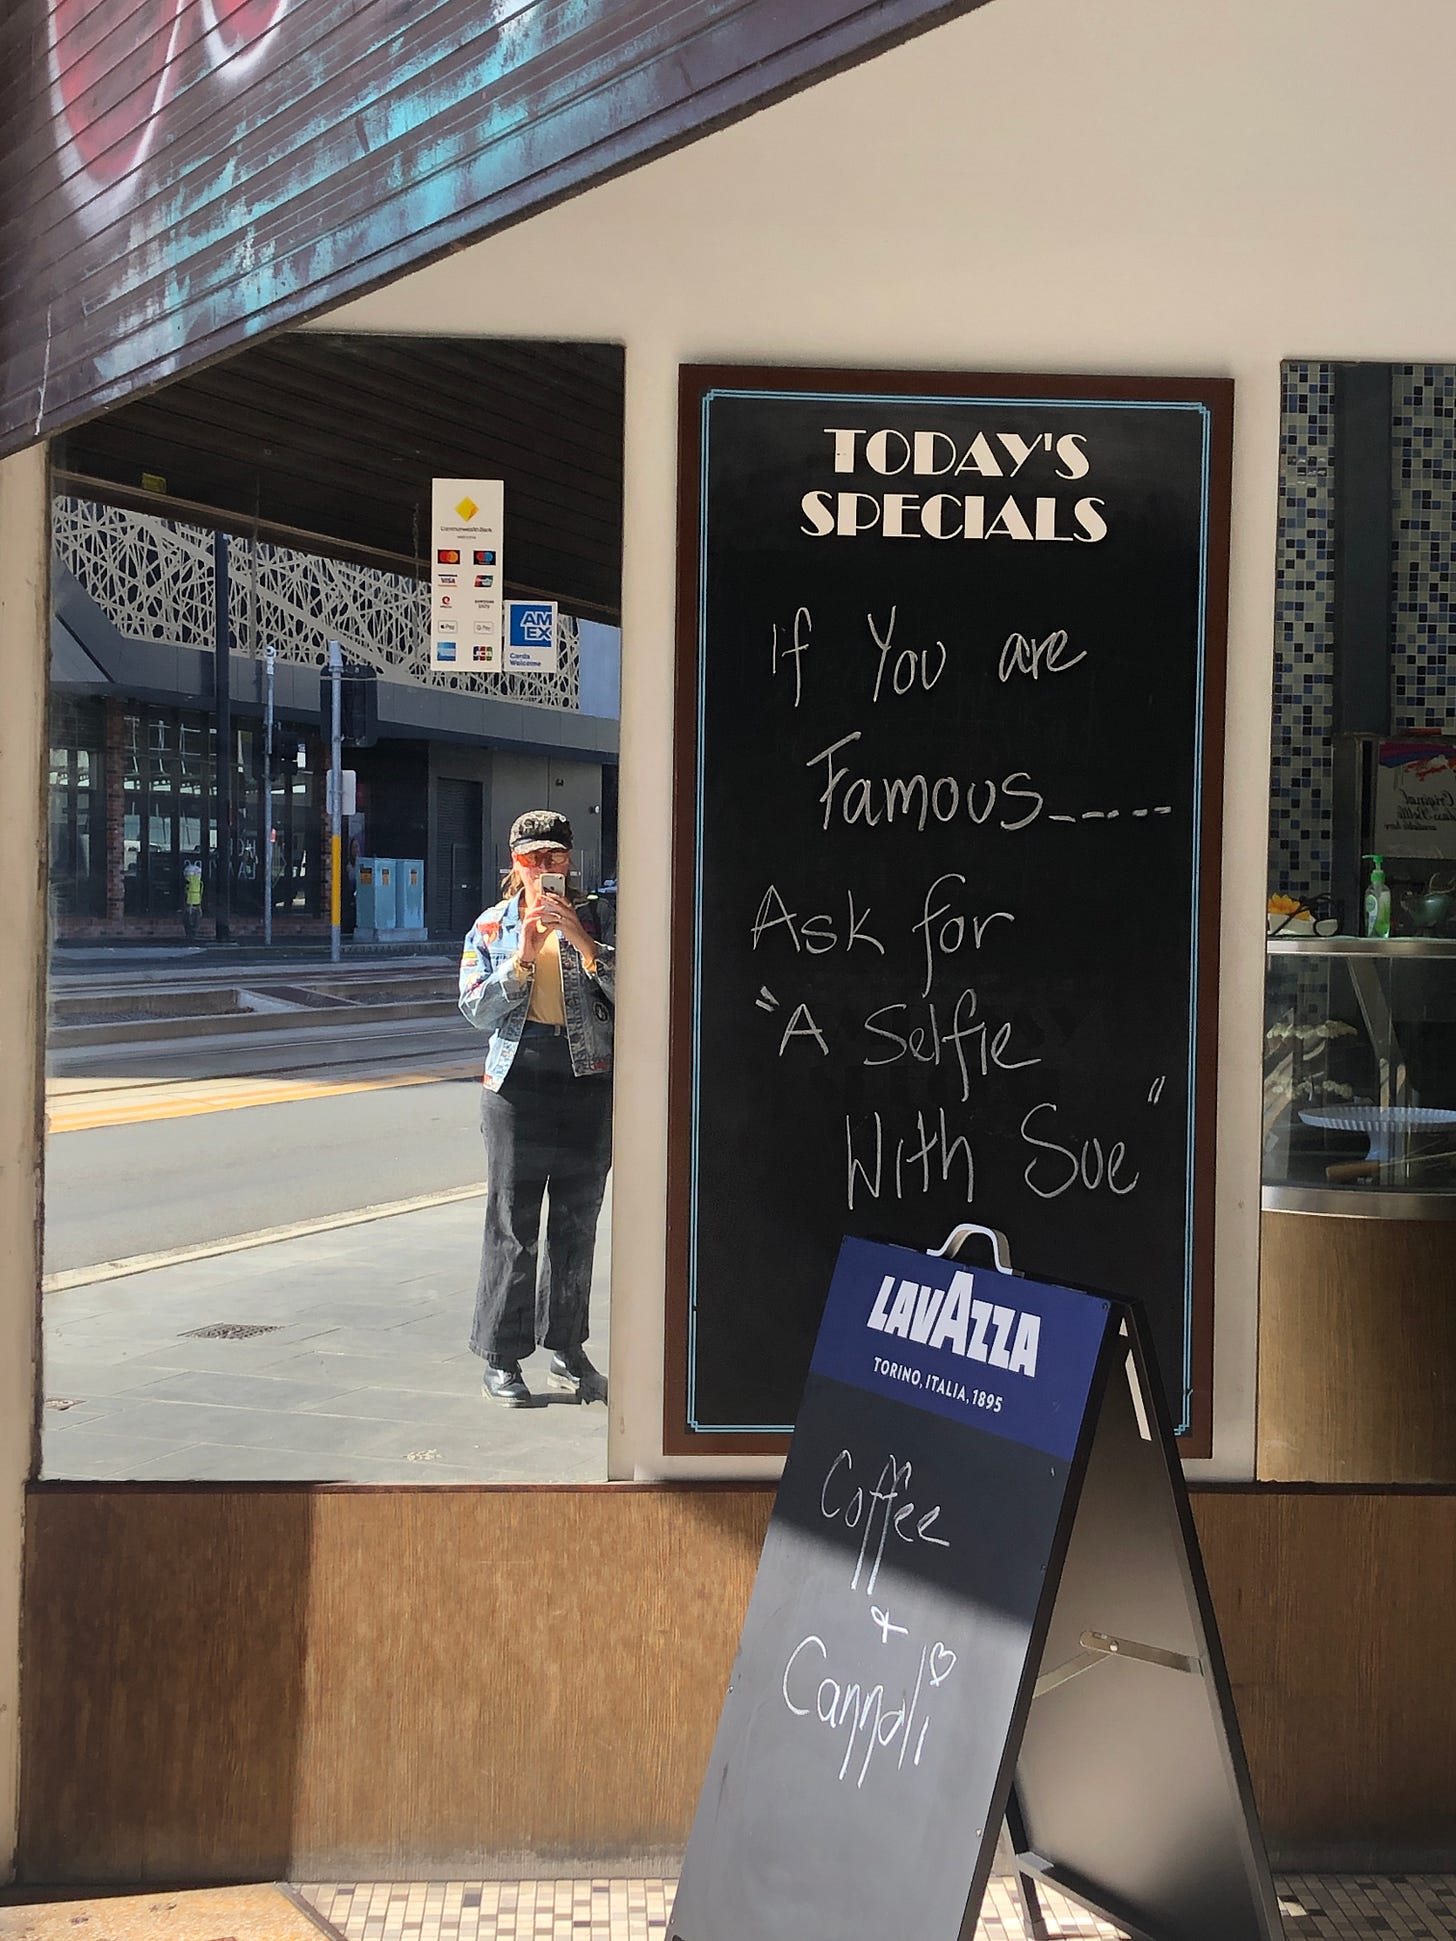 CommonwealthBank
VISA
Pay
G Pay
AM
EX
Cards
Welcome
TODAY'S
SPECIALS
If You are
Famous-----
Ask for
"A Selfie
With Sue"
LAVAZZA
TORINO, ITALIA, 1895
Coffee
&
Cannoli
Original